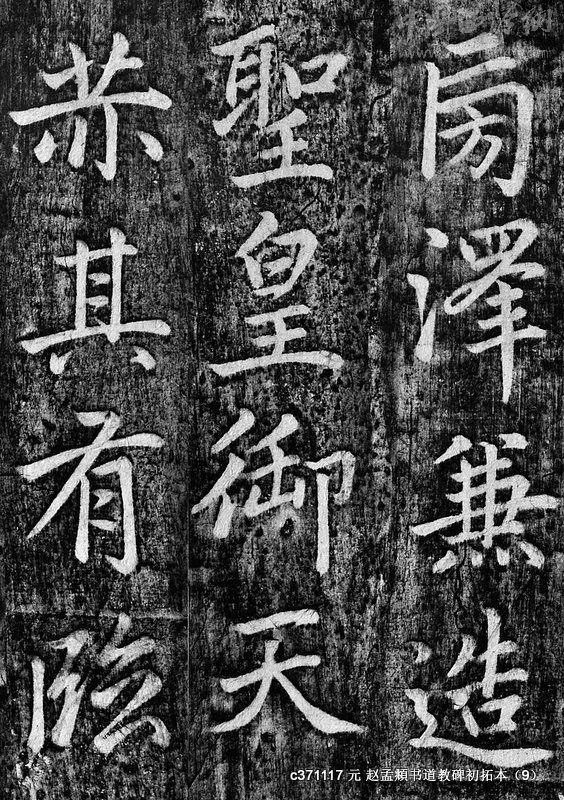 房澤兼造
聖皇御天
其有臨
c371117 元 赵孟頫书道教碑初拓本（9）